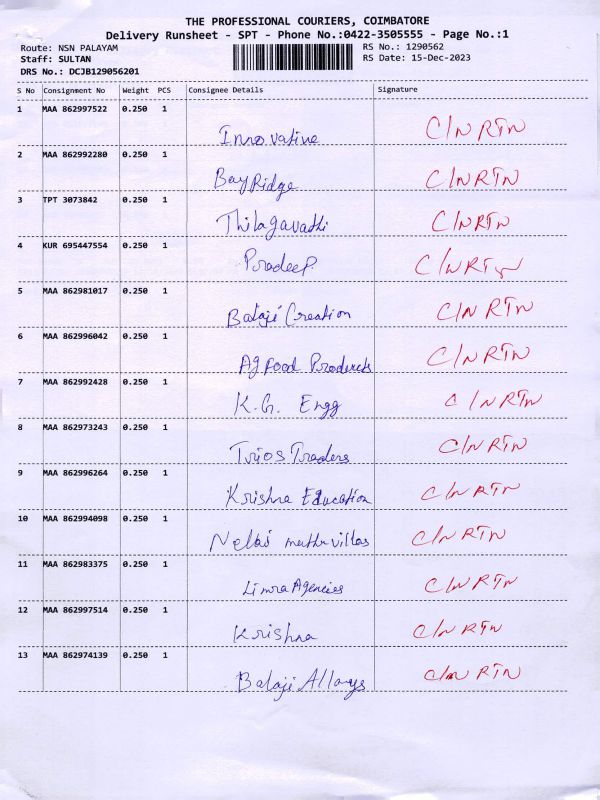 THE PROFESSIONAL COURIERS, COIMBATORE
Delivery Runsheet - SPT - Phone No.:0422-3505555 - Page No.:1
Route: NSN PALAYAM RS No.: 1290562
Staff: SULTAN RS Date: 15-Dec-2023
DRS No.: DCJB129056201
S No Consignment No Weight PCS Consignee Details Signature
1 MAA 862997522 0.250 1
Innovative C/N RTN
2 MAA 862992280 0.250 1
BayRidge C/N RTN
3 TPT 3073842 0.250 1
Thilagavathi C/N RTN
4 KUR 695447554 0.250 1
Pradeep C/N RTN
5 MAA 862981017 0.250 1
Balaji Creation C/N RTN
6 MAA 862996042 0.250 1
Ag Food Products C/N RTN
7 MAA 862992428 0.250 1
K.G. Engg C/N RTN
8 MAA 862973243 0.250 1
Trios Traders C/N RTN
9 MAA 862996264 0.250 1
Krishna Education C/N RTN
10 MAA 862994098 0.250 1
Nellai muthu villas C/N RTN
11 MAA 862983375 0.250 1
Limra Agencies C/N RTN
12 MAA 862997514 0.250 1
Krishna C/N RTN
13 MAA 862974139 0.250 1
Balaji Alloys C/N RTN